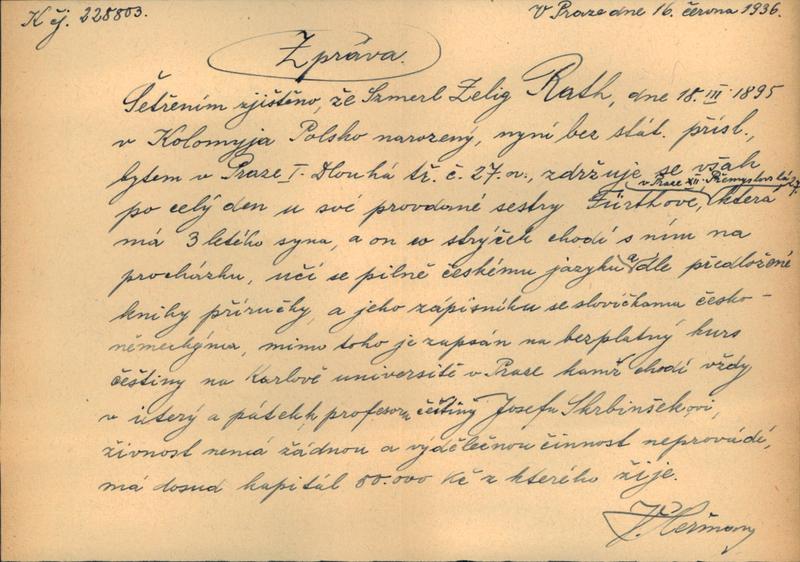 K čj. 228803.
V Praze dne 16. června 1936.
Zpráva.
Šetřením zjištěno, že Szmerl Zelig Rath, dne 18. III. 1895
v Kolomyja Polsko narozený, nyní bez stát. přísl.,
bytem v Praze I. Dlouhá tř. č. 27. n., zdržuje se však
v Praze XII. Přemyslovská 27.
po celý den u své provdané sestry Fürthové, která
má 3 letého syna, a on co strýček chodí s ním na
procházku, učí se pilně českému jazyku a dle předložené
knihy příručky, a jeho zápisníku se slovíčkama česko-
německýma, mimo toho je zapsán na bezplatný kurs
češtiny na Karlově universitě v Praze kamž chodí vždy
v úterý a pátek k profesoru češtiny Josefu Skrbinšekovi,
živnost nemá žádnou a výdělečnou činnost neprovádí,
má dosud kapitál 80.000 Kč z kterého žije.
J. Heřmany